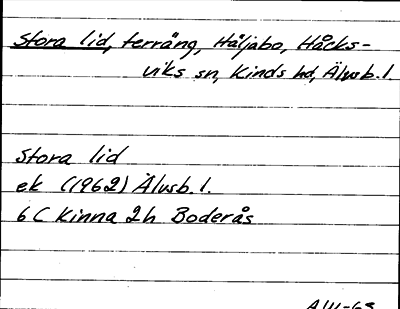 Stora lid, terräng, Häljabo, Håcks-
viks sn, Kinds hd, Älvsb. l.
Stora lid
ek (1962) Älvsb. l.
6 C Kinna 2h Boderås